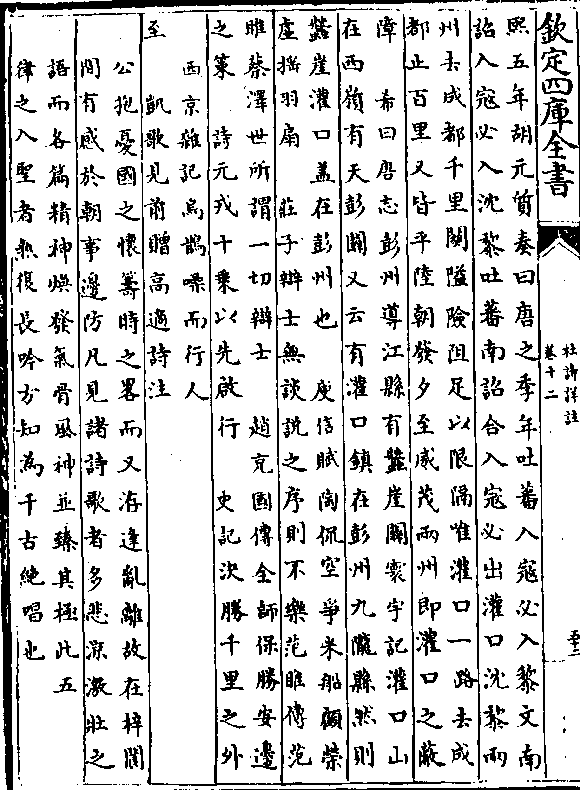 欽定四庫全書
杜詩詳註
卷十二
熙五年胡元質奏曰唐之季年吐蕃入寇必入黎文南
詔入寇必入沈黎吐蕃南詔合入寇必出灌口沈黎兩
州去成都千里關隘險阻足以限隔唯灌口一路去成
都止百里又皆平陸朝發夕至威茂兩州即灌口之蔽
障　希曰唐志彭州導江縣有蠶崖關寰宇記灌口山
在西嶺有天彭闕又云有灌口鎮在彭州九隴縣然則
蠶崖灌口蓋在彭州也　庾信賦陶侃空爭米船顧榮
虛搖羽扇　莊子辯士無談說之序則不樂范睢傳范
睢蔡澤世所謂一切辯士　趙充國傳全師保勝安邊
之策　詩元戎十乘以先啟行　史記決勝千里之外
西京雜記烏鵲噪而行人
至　凱歌見前贈高適詩注
公抱憂國之懷籌時之畧而又洊逢亂離故在梓閬
間有感於朝事邊防凡見諸詩歌者多悲涼激壯之
語而各篇精神煥發氣骨風神並臻其極此五
律之入聖者熟復長吟方知為千古絕唱也